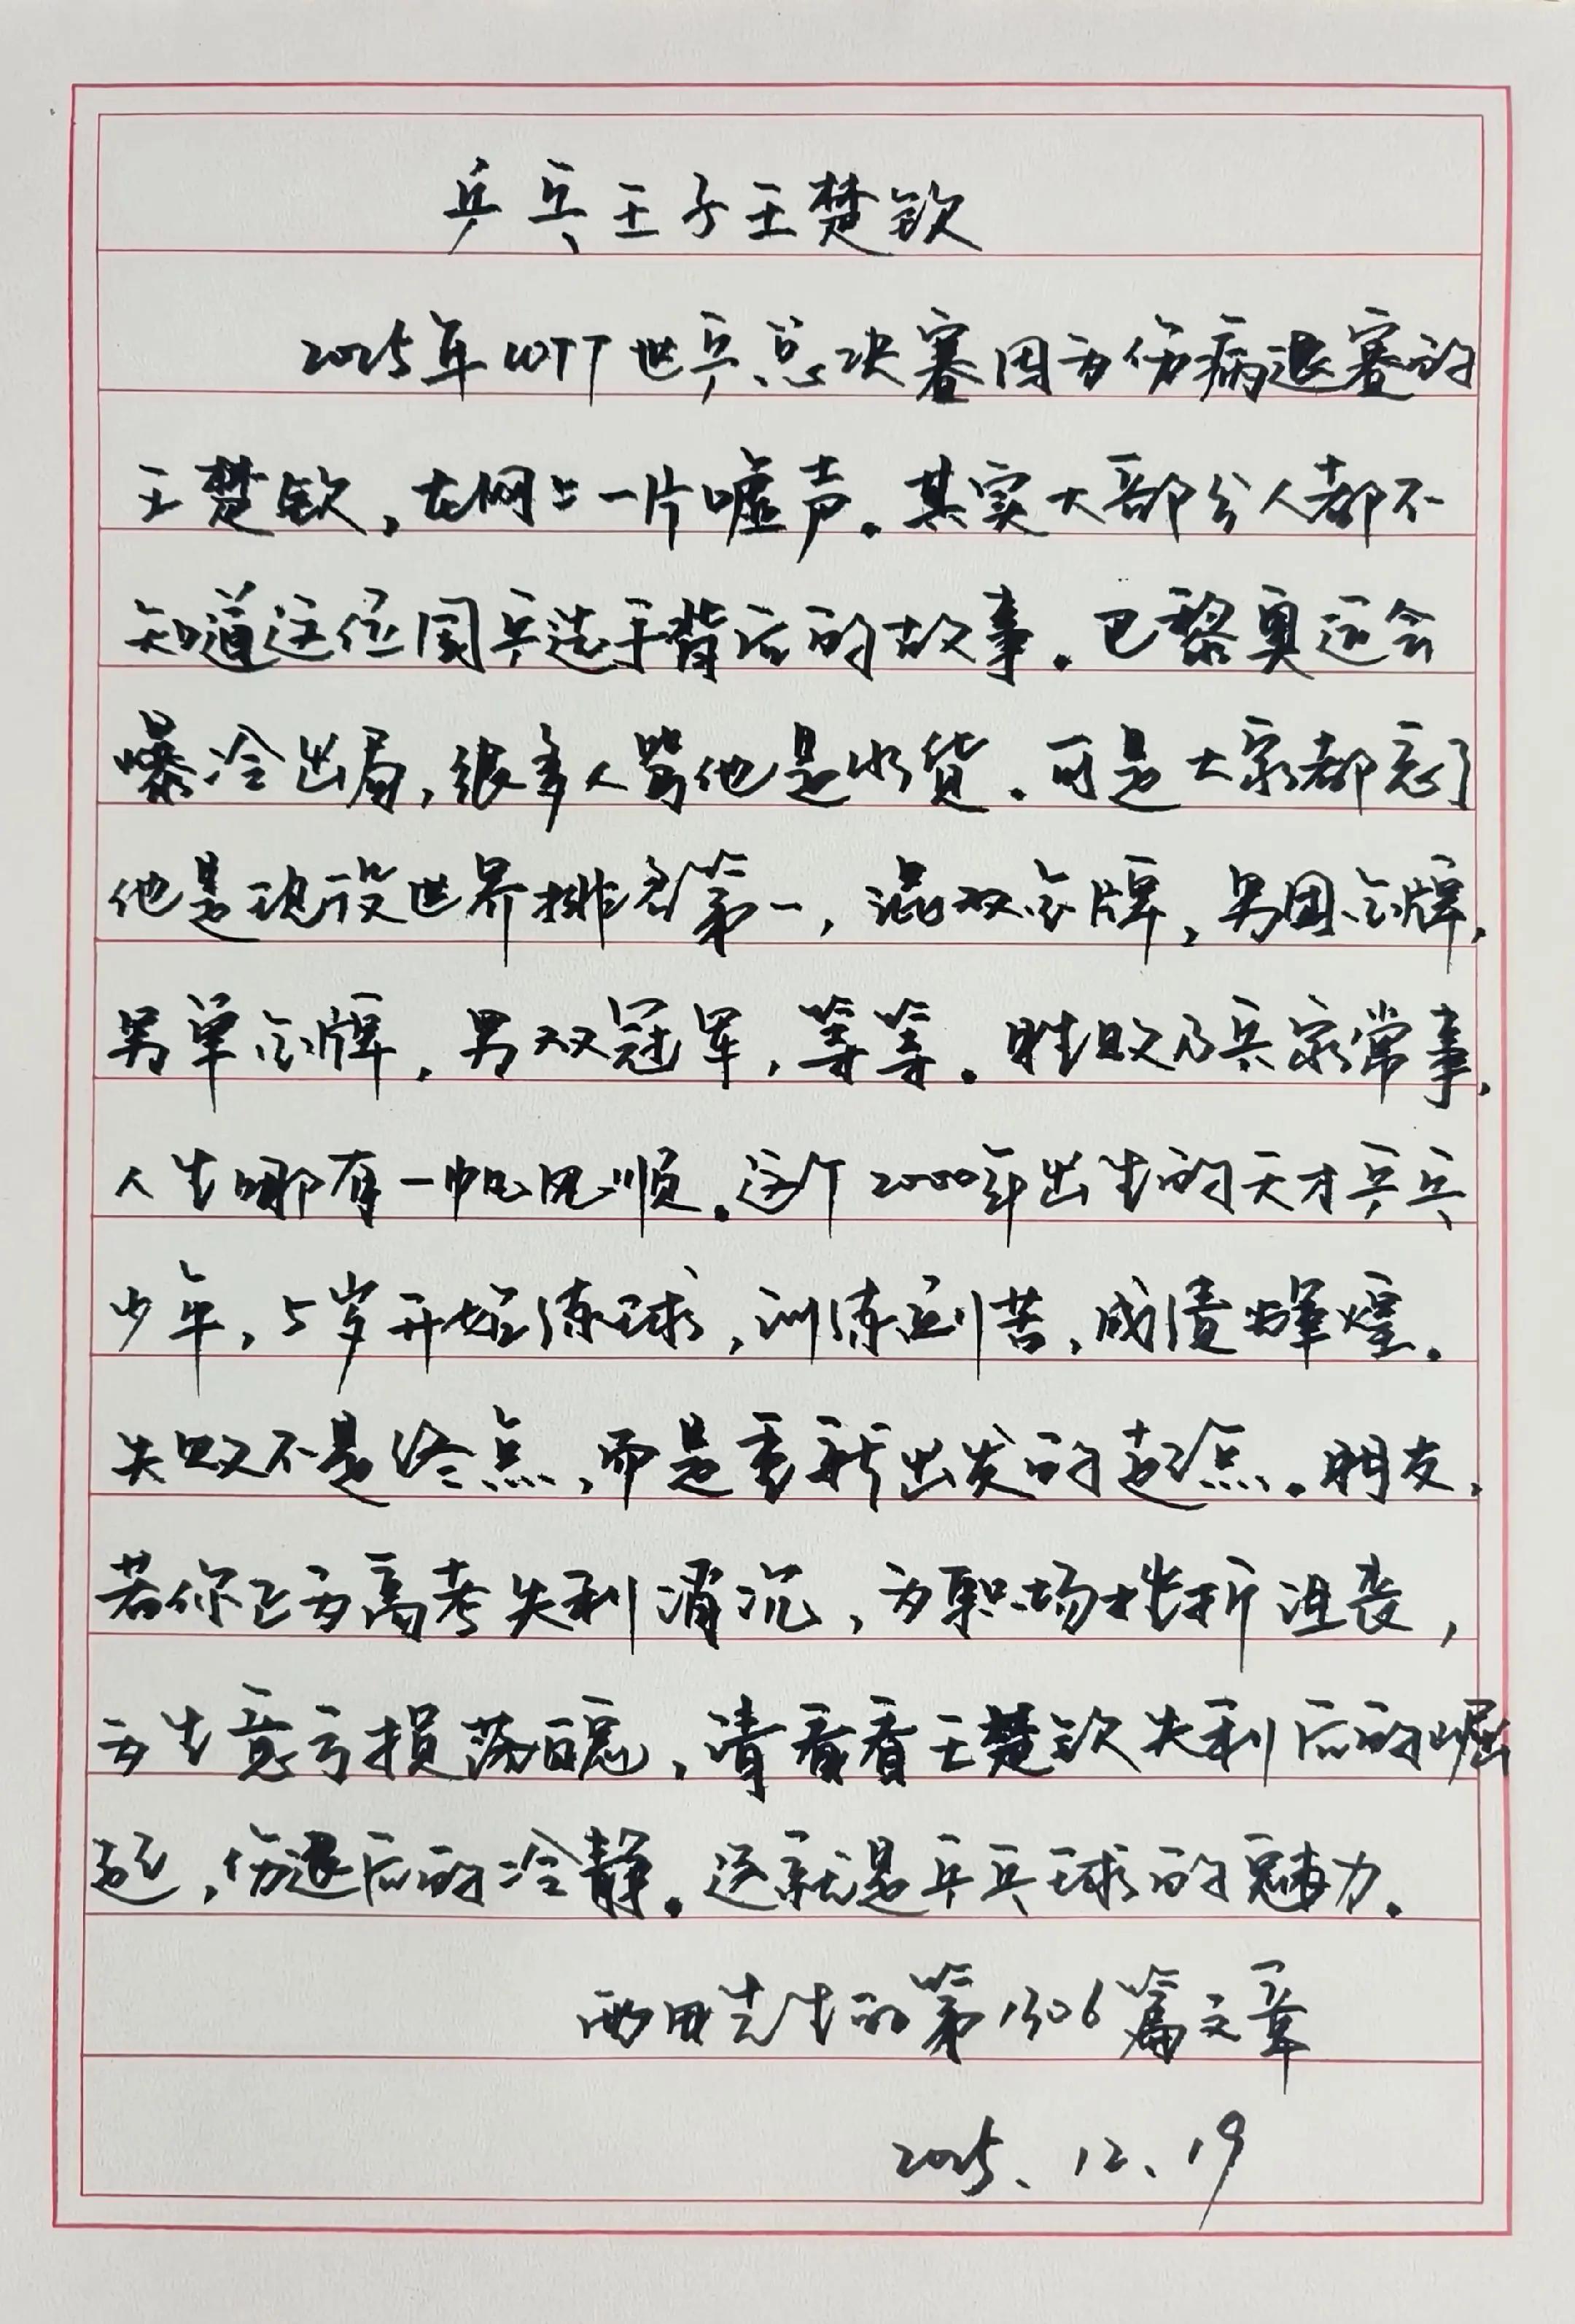 乒乓王子王楚钦
2025年WTT世乒总决赛因为伤病退赛的
王楚钦,在网上一片嘘声。其实大部分人都不
知道这位国乒选手背后的故事。巴黎奥运会
曝冷出局,很多人骂他是水货。可是大家都忘了
他是现役世界排名第一,混双金牌,男团金牌,
男单金牌,男双冠军,等等。胜败乃兵家常事,
人生哪有一帆风顺。这个2000年出生的天才乒乓
少年,5岁开始练球,训练刻苦,成绩辉煌。
失败不是终点,而是重新出发的起点。朋友,
若你正为高考失利消沉,为职场挫折沮丧,
为生意亏损落魄,请看看王楚钦失利后的崛
起,伤退后的冷静。这就是乒乓球的魅力。
先生的第1306篇文章
2025、12、19